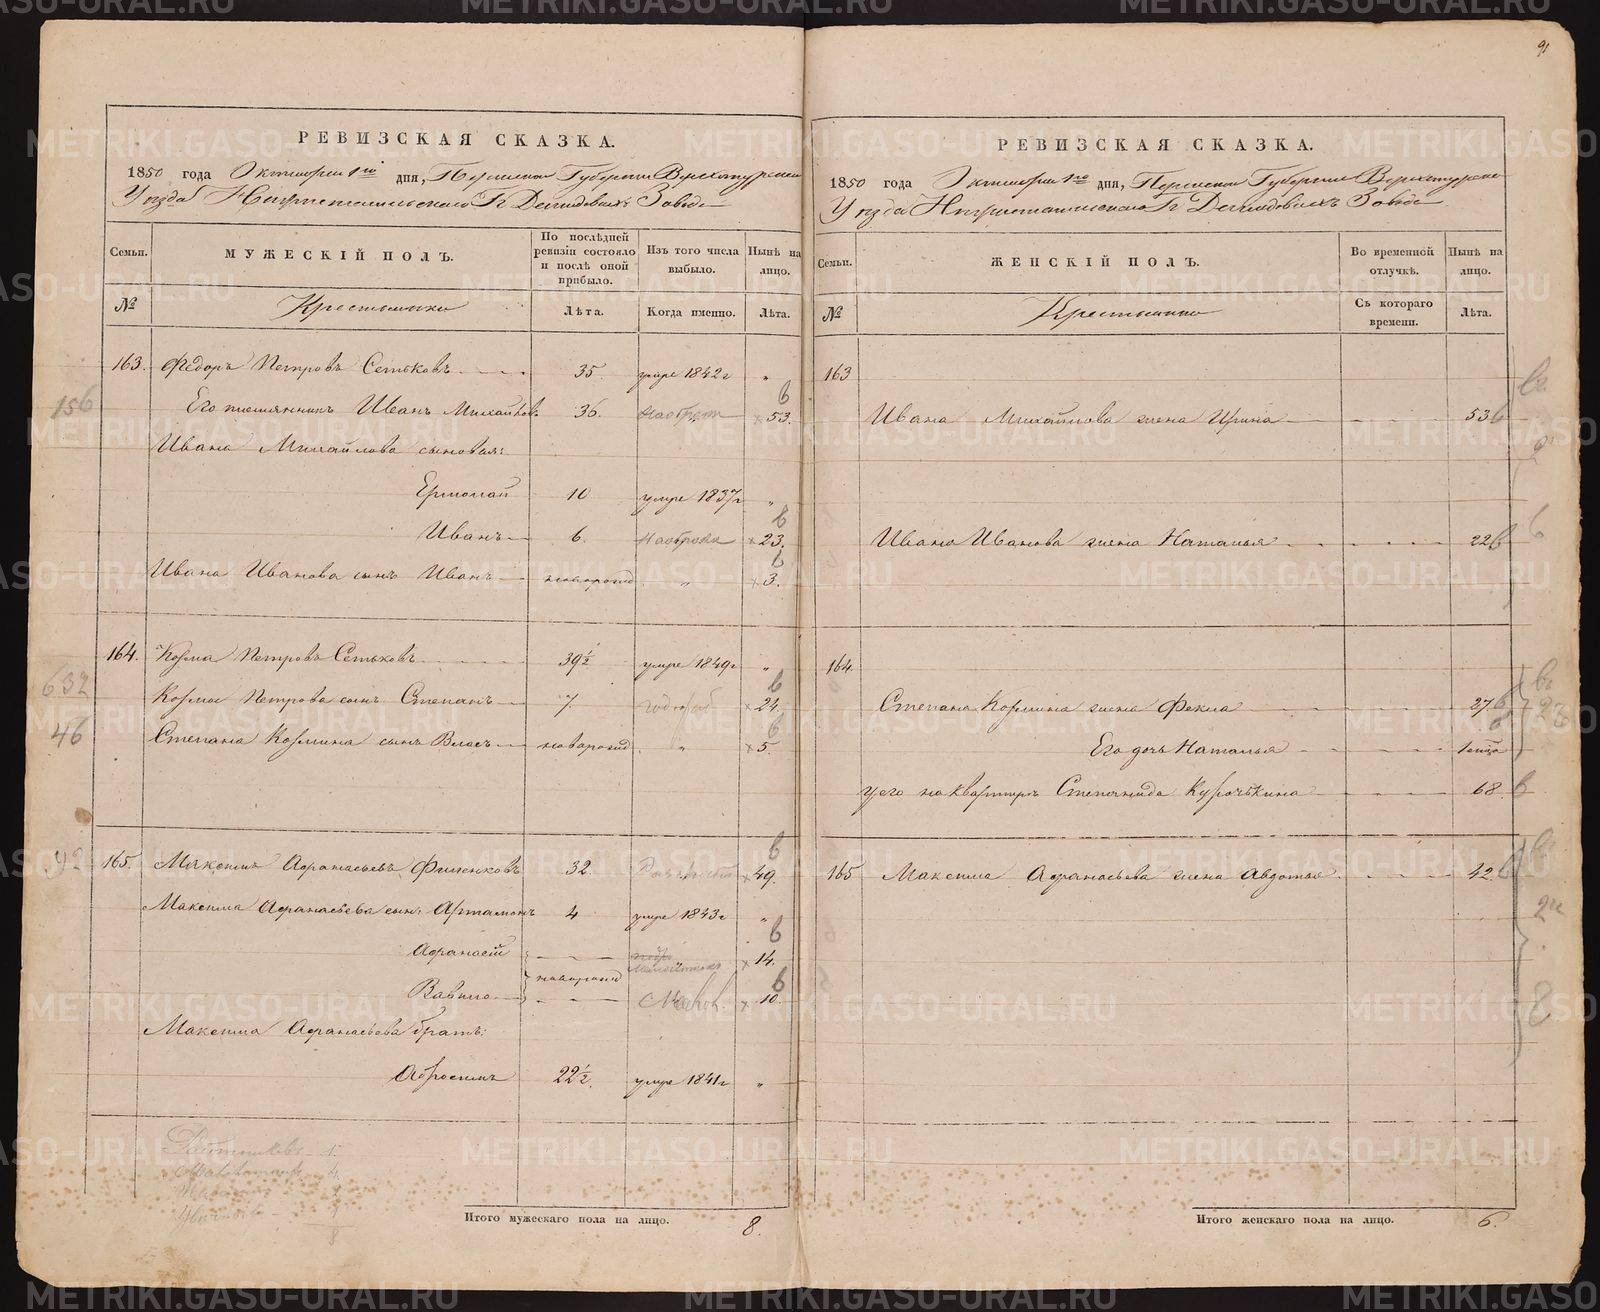 91
РЕВИЗСКАЯ СКАЗКА.
1850 года Октября 1го дня, Пермской Губернии Верхотурскаго
Уѣзда Г. Демидовыхъ Завода
Семьи. МУЖЕСКІЙ ПОЛЪ. По послѣдней ревизіи состояло и послѣ оной прибыло. Изъ того числа выбыло. Нынѣ на лицо.
№ Лѣта. Когда именно. Лѣта.
163. Федоръ Петровъ 35. умре 1842г „
Его племянникъ Иванъ Михайловъ 36. 53.
Ивана Михайлова сыновья:
Ермолай 10 умре 1837г „
Иванъ 6. 23.
Ивана Иванова сынъ Иванъ новорожд. „ 3.
164. Козма Петровъ 39½ умре 1849г „
Козмы Петрова сынъ Степанъ 7. 24.
Степана Козмина сынъ Власъ новорожд. „ 5.
165. Максимъ Афанасьевъ 32. 49.
Максима Афанасьева сынъ Артамонъ 4 умре 1843г „
Афанасій 14.
новорожд
Вавило 10
Максима Афанасьева братъ:
Абросимъ 22½. умре 1841г „
Итого мужескаго пола на лицо. 8.
РЕВИЗСКАЯ СКАЗКА.
1850 года Октября 1го дня, Пермской Губернии Верхотурскаго
Уѣзда Г. Демидовыхъ Завода
Семьи. ЖЕНСКІЙ ПОЛЪ. Во временной отлучкѣ. Нынѣ на лицо.
№ Съ котораго времени. Лѣта.
163
Ивана Михайлова жена Ирина 53
Ивана Иванова жена Наталья 22
164.
Степана Козмина жена Фекла 27
Его дочь Наталья
У его на квартирѣ Степанида Курочкина 68.
165 Максима Афанасьева жена Авдотья 42.
Итого женскаго пола на лицо. 6.
156
632
46
92
METRIKI.GASO-URAL.RU